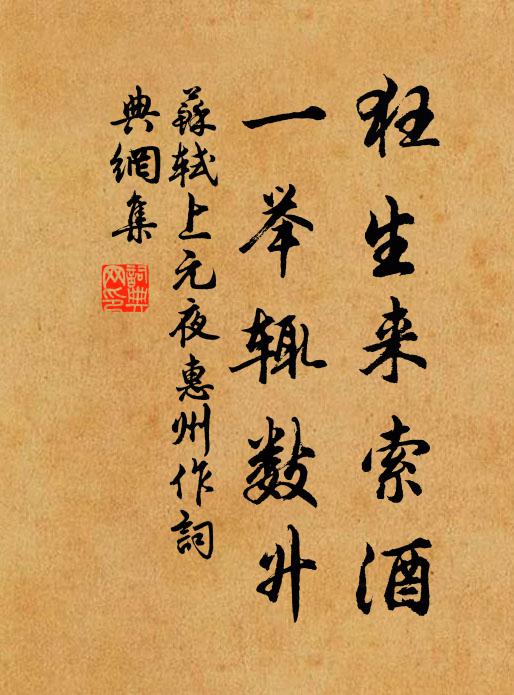 狂生来索酒
一举辄数升
蘇軾上元夜惠州作詞
典網集
詞典网印